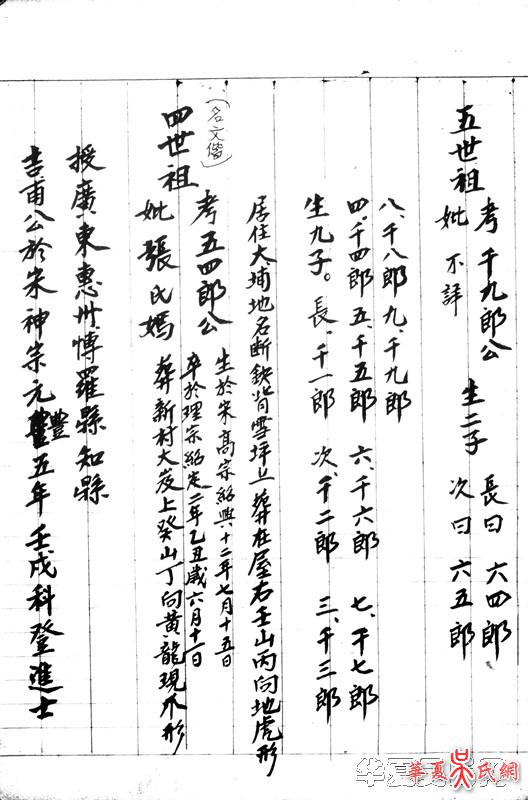 吉甫公於宋神宗元豐五年壬戌科登進士
授廣東惠州博羅縣知縣
四世祖
(名文偕)
考五四郎公
生於宋高宗紹興十二年七月十五日
卒於理宗紹定二年乙丑歲六月十一日
妣張氏媽
葬新村大岌上癸山丁向黃龍現爪形
居住大埔地名断鈌背雪坪上葬在屋右壬山丙向地虎形
生九子。長、千一郎 次、千二郎 三、千三郎
四、千四郎 五、千五郎 六、千六郎 七、千七郎
八、千八郎 九、千九郎
五世祖
考千九郎公
妣不詳
生二子
長曰六四郎
次曰六五郎
華夏吴氏網